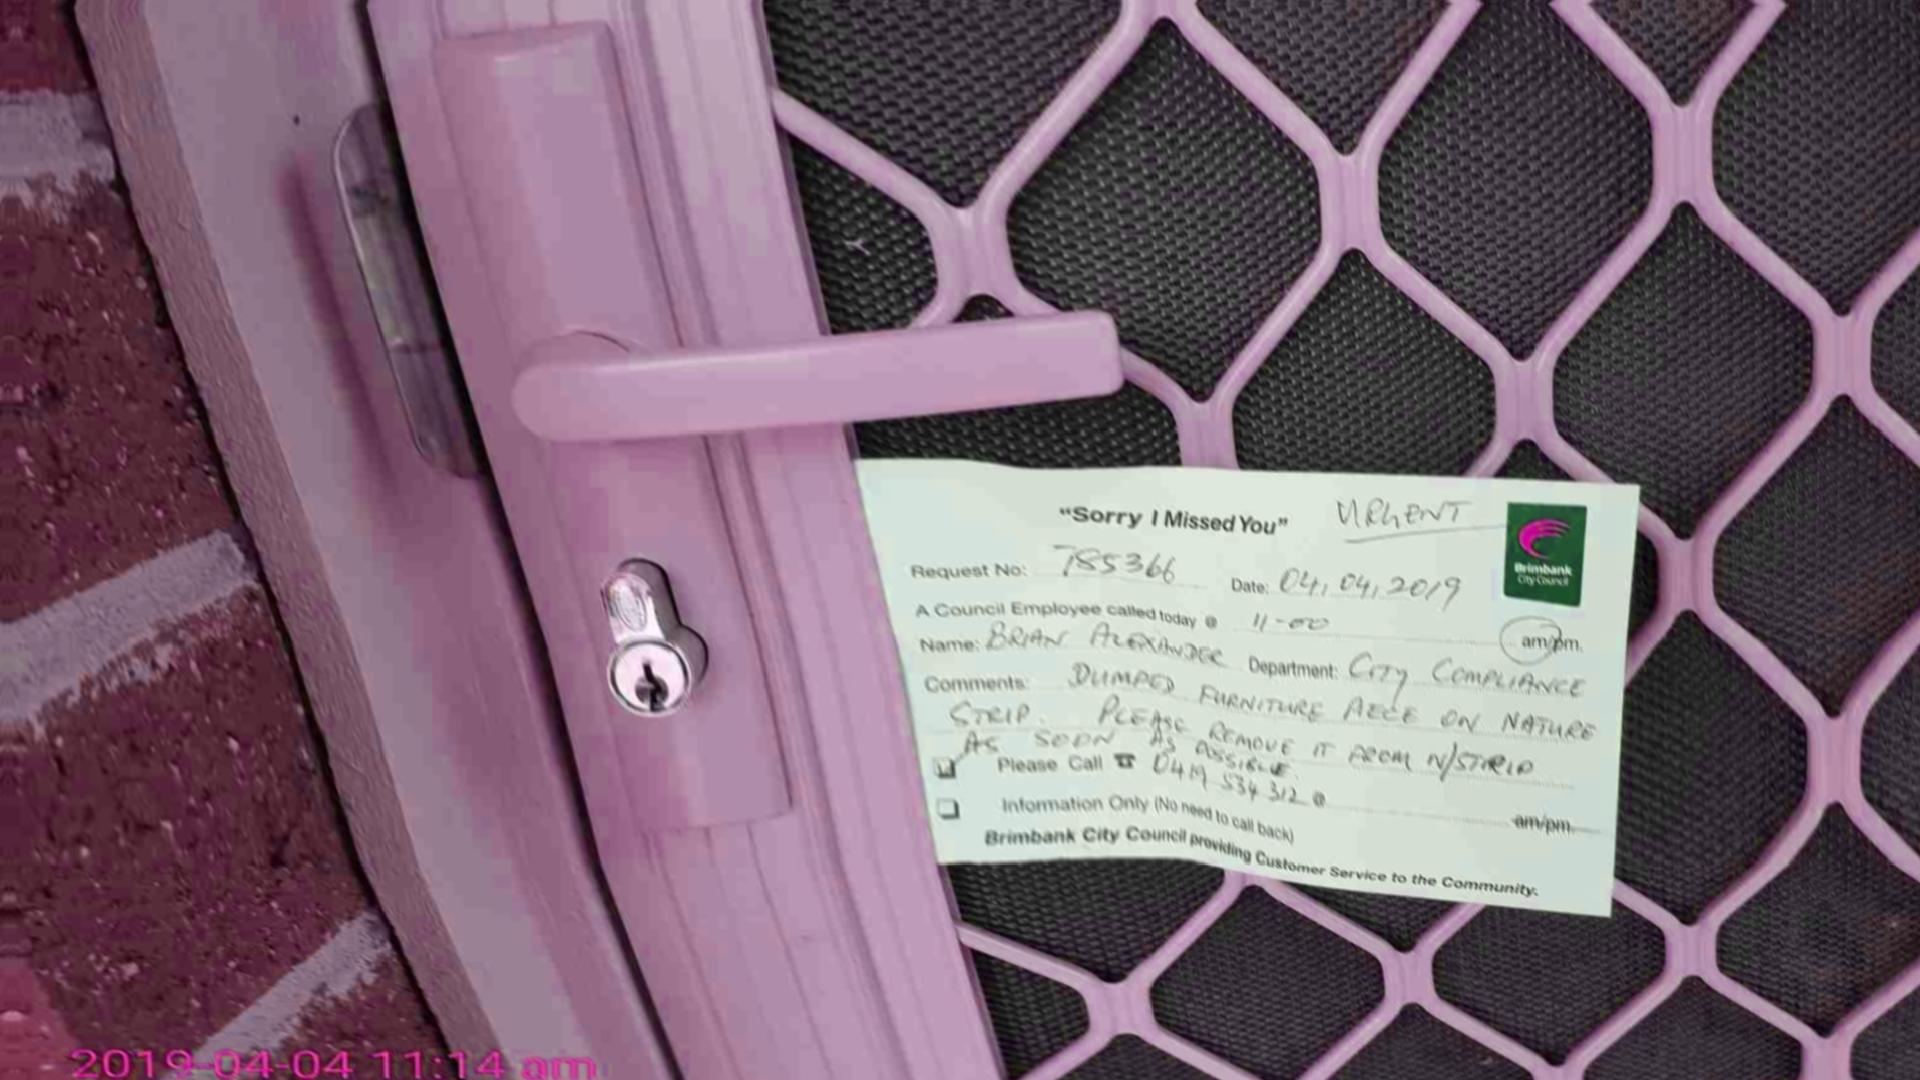 "Sorry I Missed You" URGENT
Brimbank
City Council
Request No: 785366 Date: 04,04,2019
A Council Employee called today @ 11-00 am/pm.
Name: BRIAN ALEXANDER Department: CITY COMPLIANCE
Comments: DUMPED FURNITURE ON NATURE
STRIP. PLEASE REMOVE IT FROM N/STRIP
AS SOON AS POSSIBLE.
Please Call ☎ 0419 534 312 @ am/pm.
Information Only (No need to call back)
Brimbank City Council providing Customer Service to the Community.
2019-04-04 11:14 am